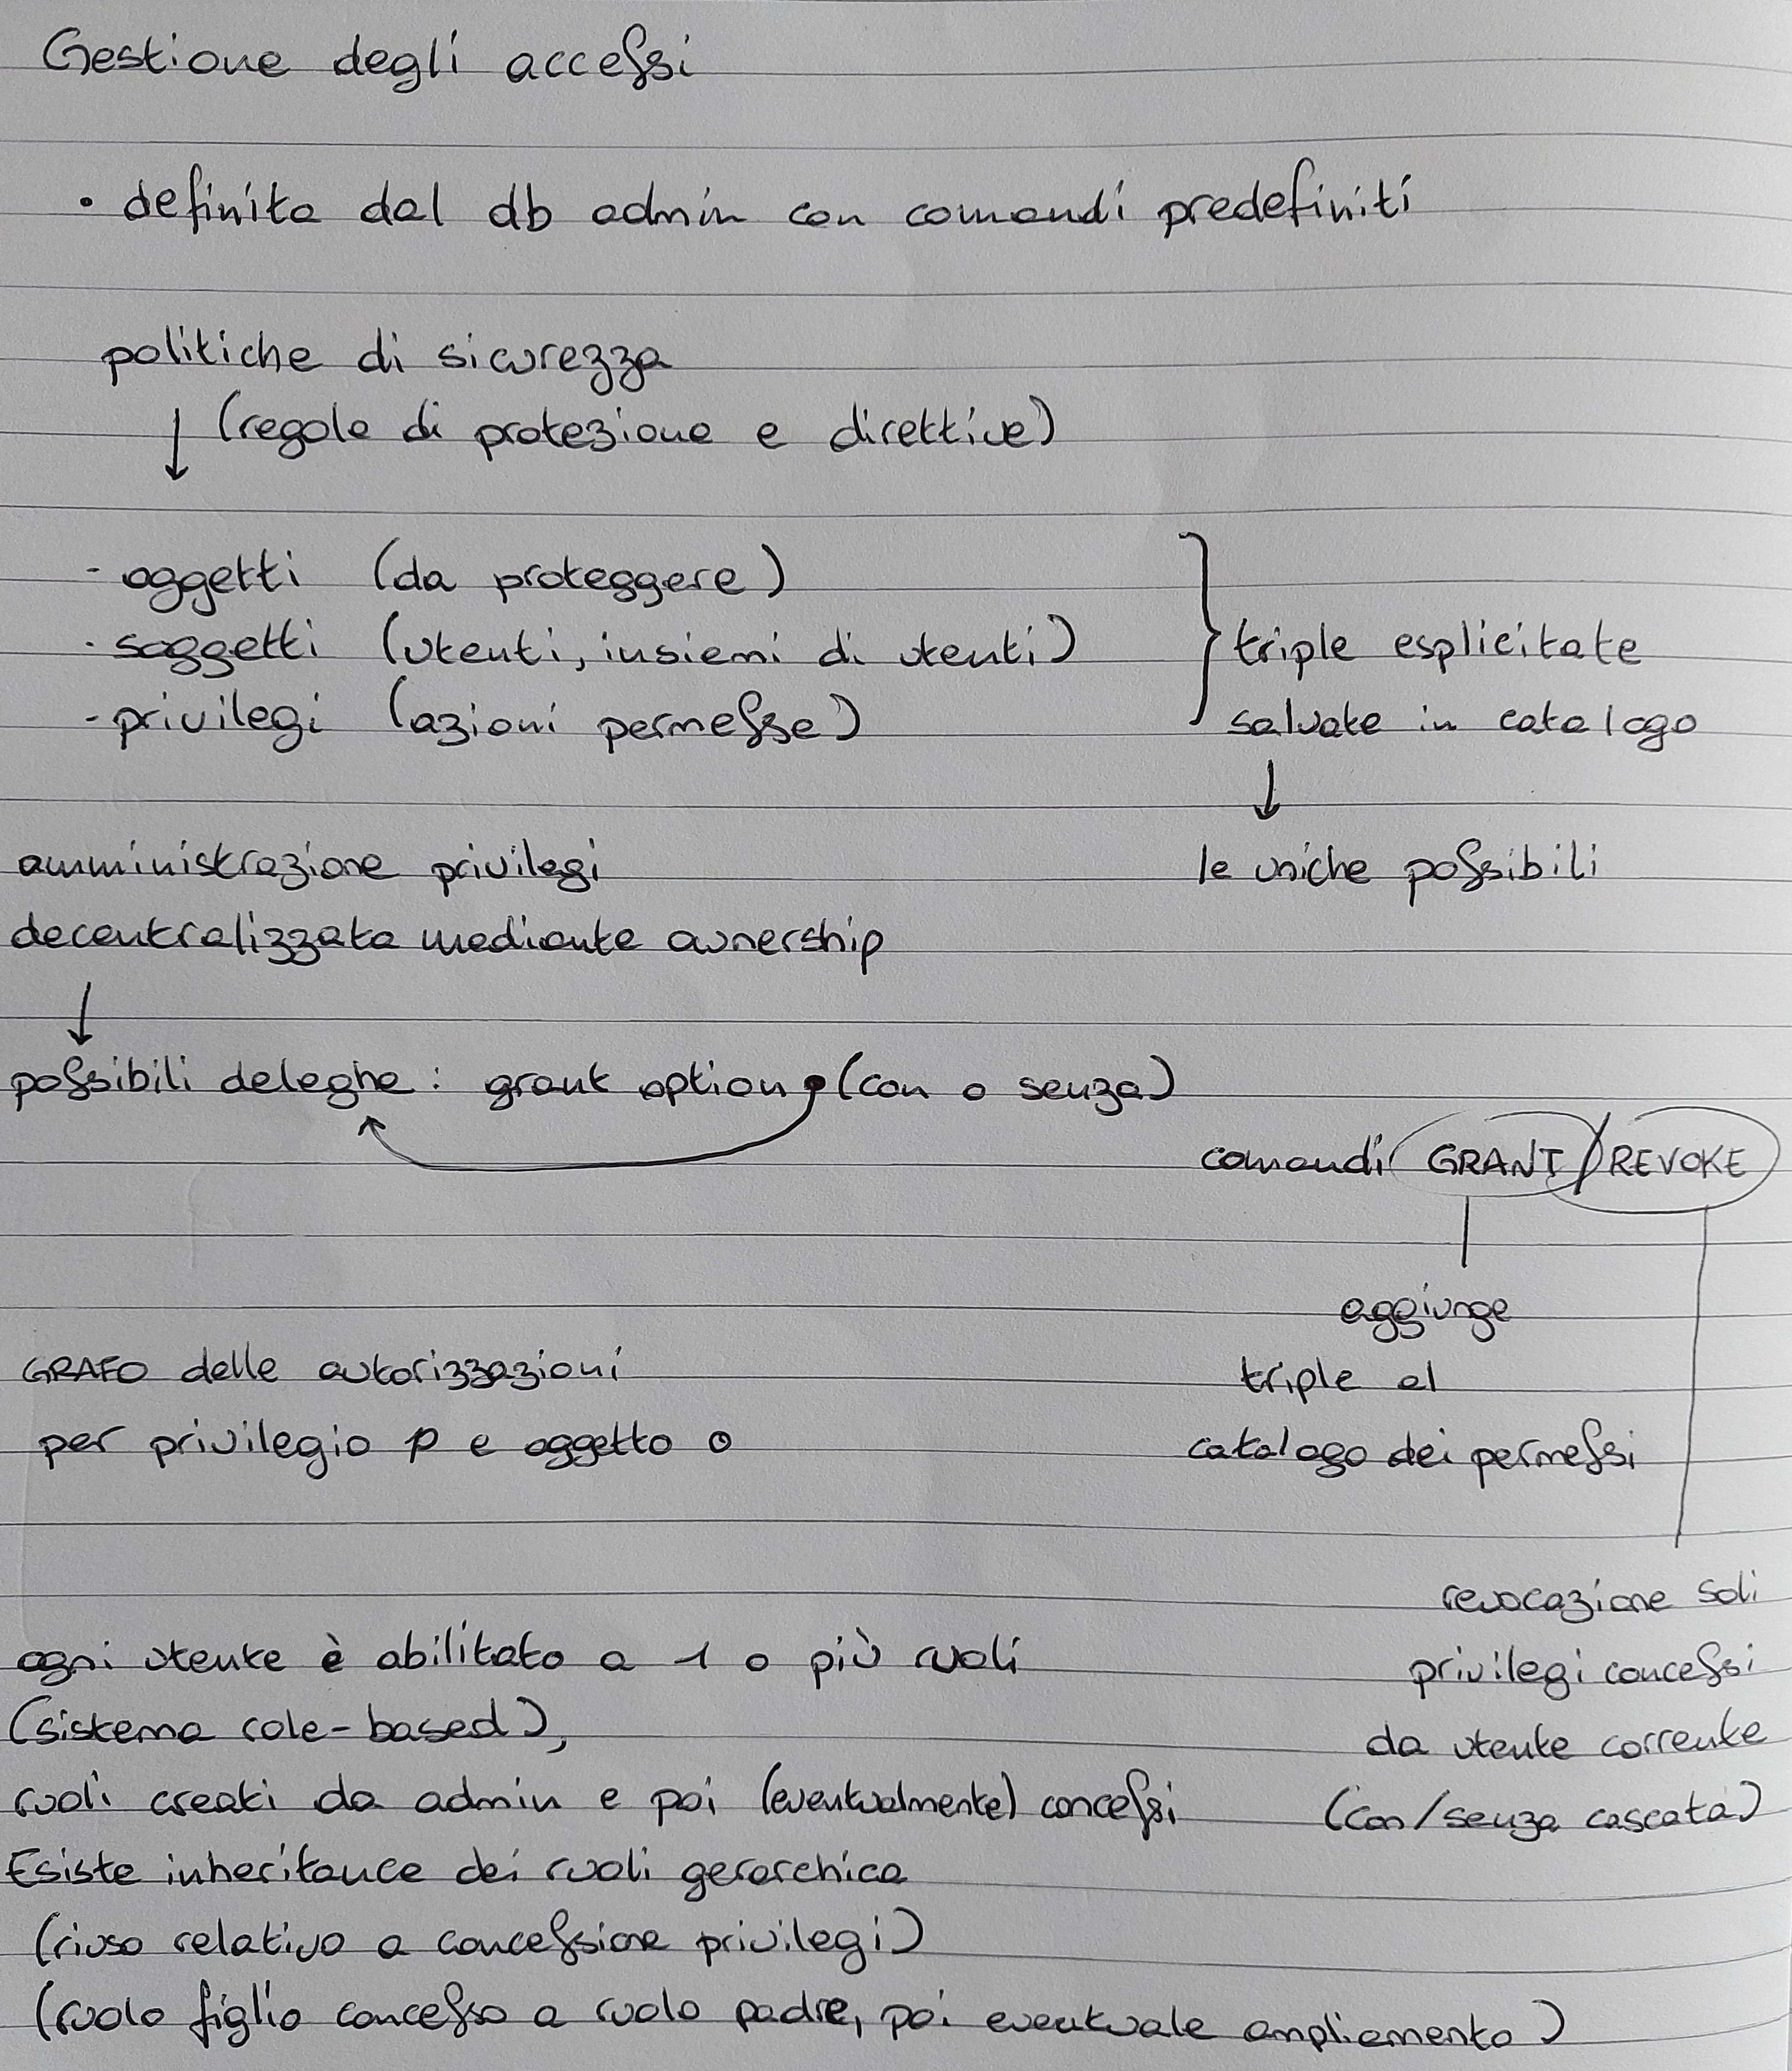 Gestione degli accessi
• definita dal db admin con comandi predefiniti
politiche di sicurezza
↓ (regole di protezione e direttive)
- oggetti (da proteggere)
- soggetti (utenti, insiemi di utenti)
- privilegi (azioni permesse)
} triple esplicitate
salvate in catalogo
↓
le uniche possibili
amministrazione privilegi
decentralizzata mediante ownership
↓
possibili deleghe : grant option (con o senza)
comandi GRANT/REVOKE
aggiunge
triple al
catalogo dei permessi
revocazione soli
privilegi concessi
da utente corrente
(con/senza cascata)
GRAFO delle autorizzazioni
per privilegio p e oggetto o
ogni utente è abilitato a 1 o più ruoli
(sistema role-based),
ruoli creati da admin e poi (eventualmente) concessi
Esiste inheritance dei ruoli gerarchica
(riuso relativo a concessione privilegi)
(ruolo figlio concesso a ruolo padre, poi eventuale ampliamento)